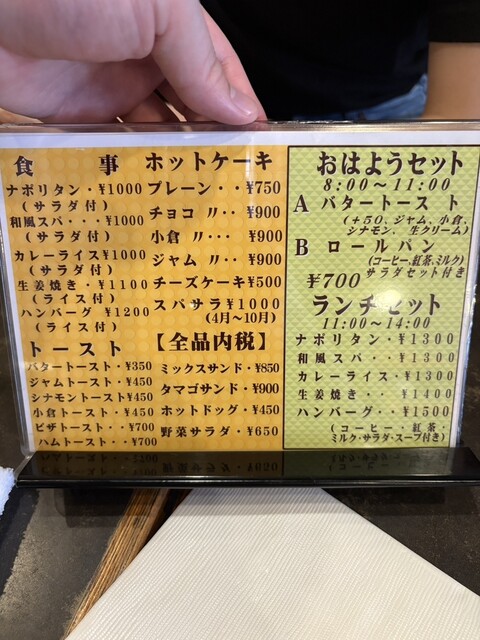 食事
ナポリタン・¥1000
(サラダ付)
和風スパ・・・¥1000
(サラダ付)
カレーライス¥1000
(サラダ付)
生姜焼き・¥1100
(ライス付)
ハンバーグ ¥1200
(ライス付)
トースト
バタートースト・¥350
ジャムトースト・¥450
シナモントースト¥450
小倉トースト・¥450
ピザトースト・・¥700
ハムトースト・・¥700
ホットケーキ
プレーン・・¥750
チョコ 〃・・¥900
小倉 〃・・・¥900
ジャム 〃・・¥900
チーズケーキ¥500
スパサラ¥1000
(4月〜10月)
【全品内税】
ミックスサンド・¥850
タマゴサンド・¥900
ホットドッグ・¥450
野菜サラダ・¥650
おはようセット
8:00〜11:00
A バタートースト
(+50、ジャム、小倉、
シナモン、生クリーム)
B ロールパン
(コーヒー、紅茶、ミルク)
¥700 サラダセット付き
ランチセット
11:00〜14:00
ナポリタン・¥1300
和風スパ・・¥1300
カレーライス・¥1300
生姜焼き・・¥1400
ハンバーグ・・¥1500
(コーヒー・紅茶
ミルク・サラダ・スープ付き)